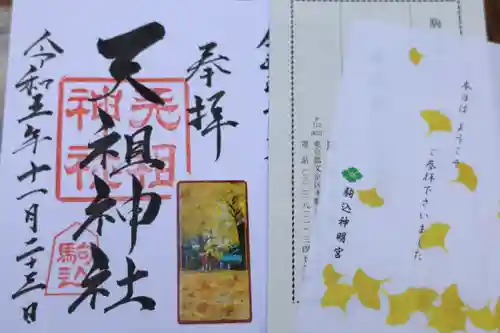 奉拝
天祖神社
天祖神社
駒込
令和五年十一月二十三日
駒
東京都文京区本駒
電話(〇三)三八二一-三四
本日は ようこそ
ご参拝下さいました
駒込神明宮